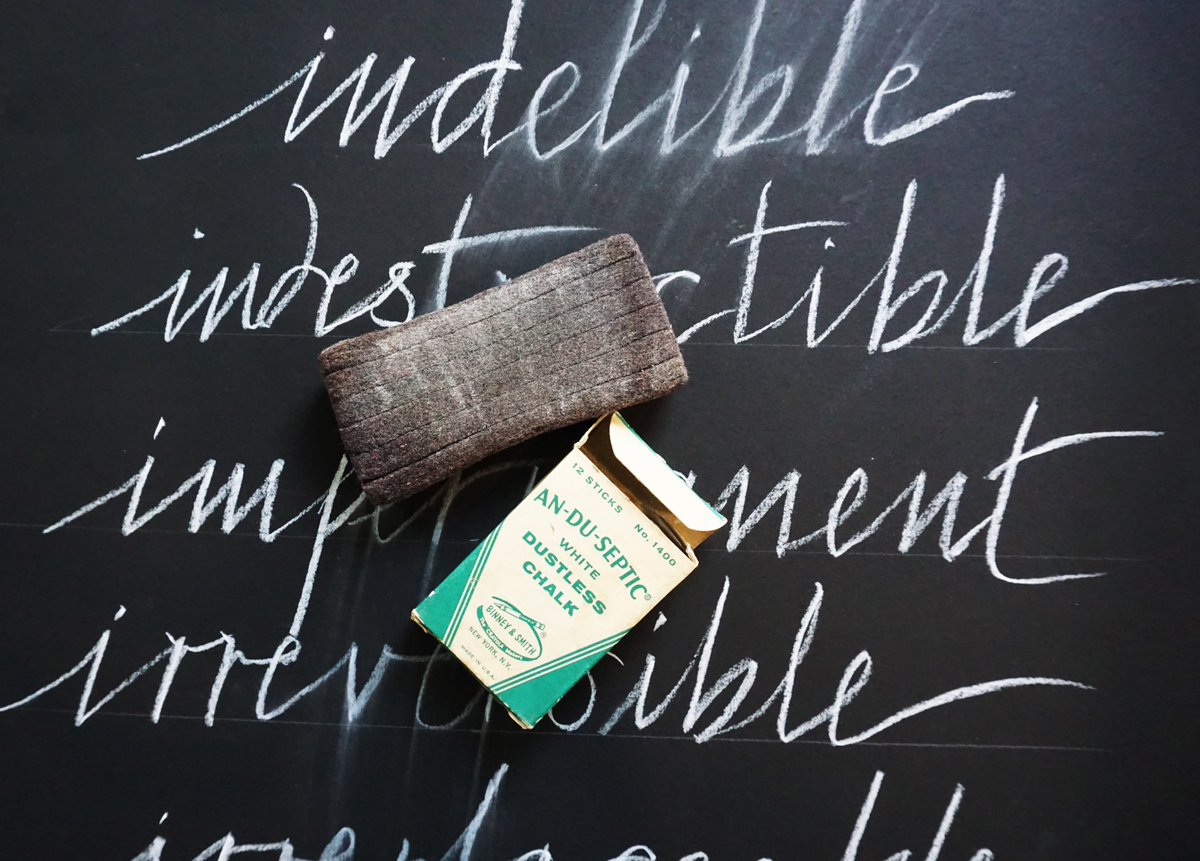 indelible
indestructible
impermanent
irreversible
12 STICKS No. 1400
AN-DU-SEPTIC®
WHITE
DUSTLESS
CHALK
BINNEY & SMITH
NEW YORK, N.Y.
MADE IN U.S.A.